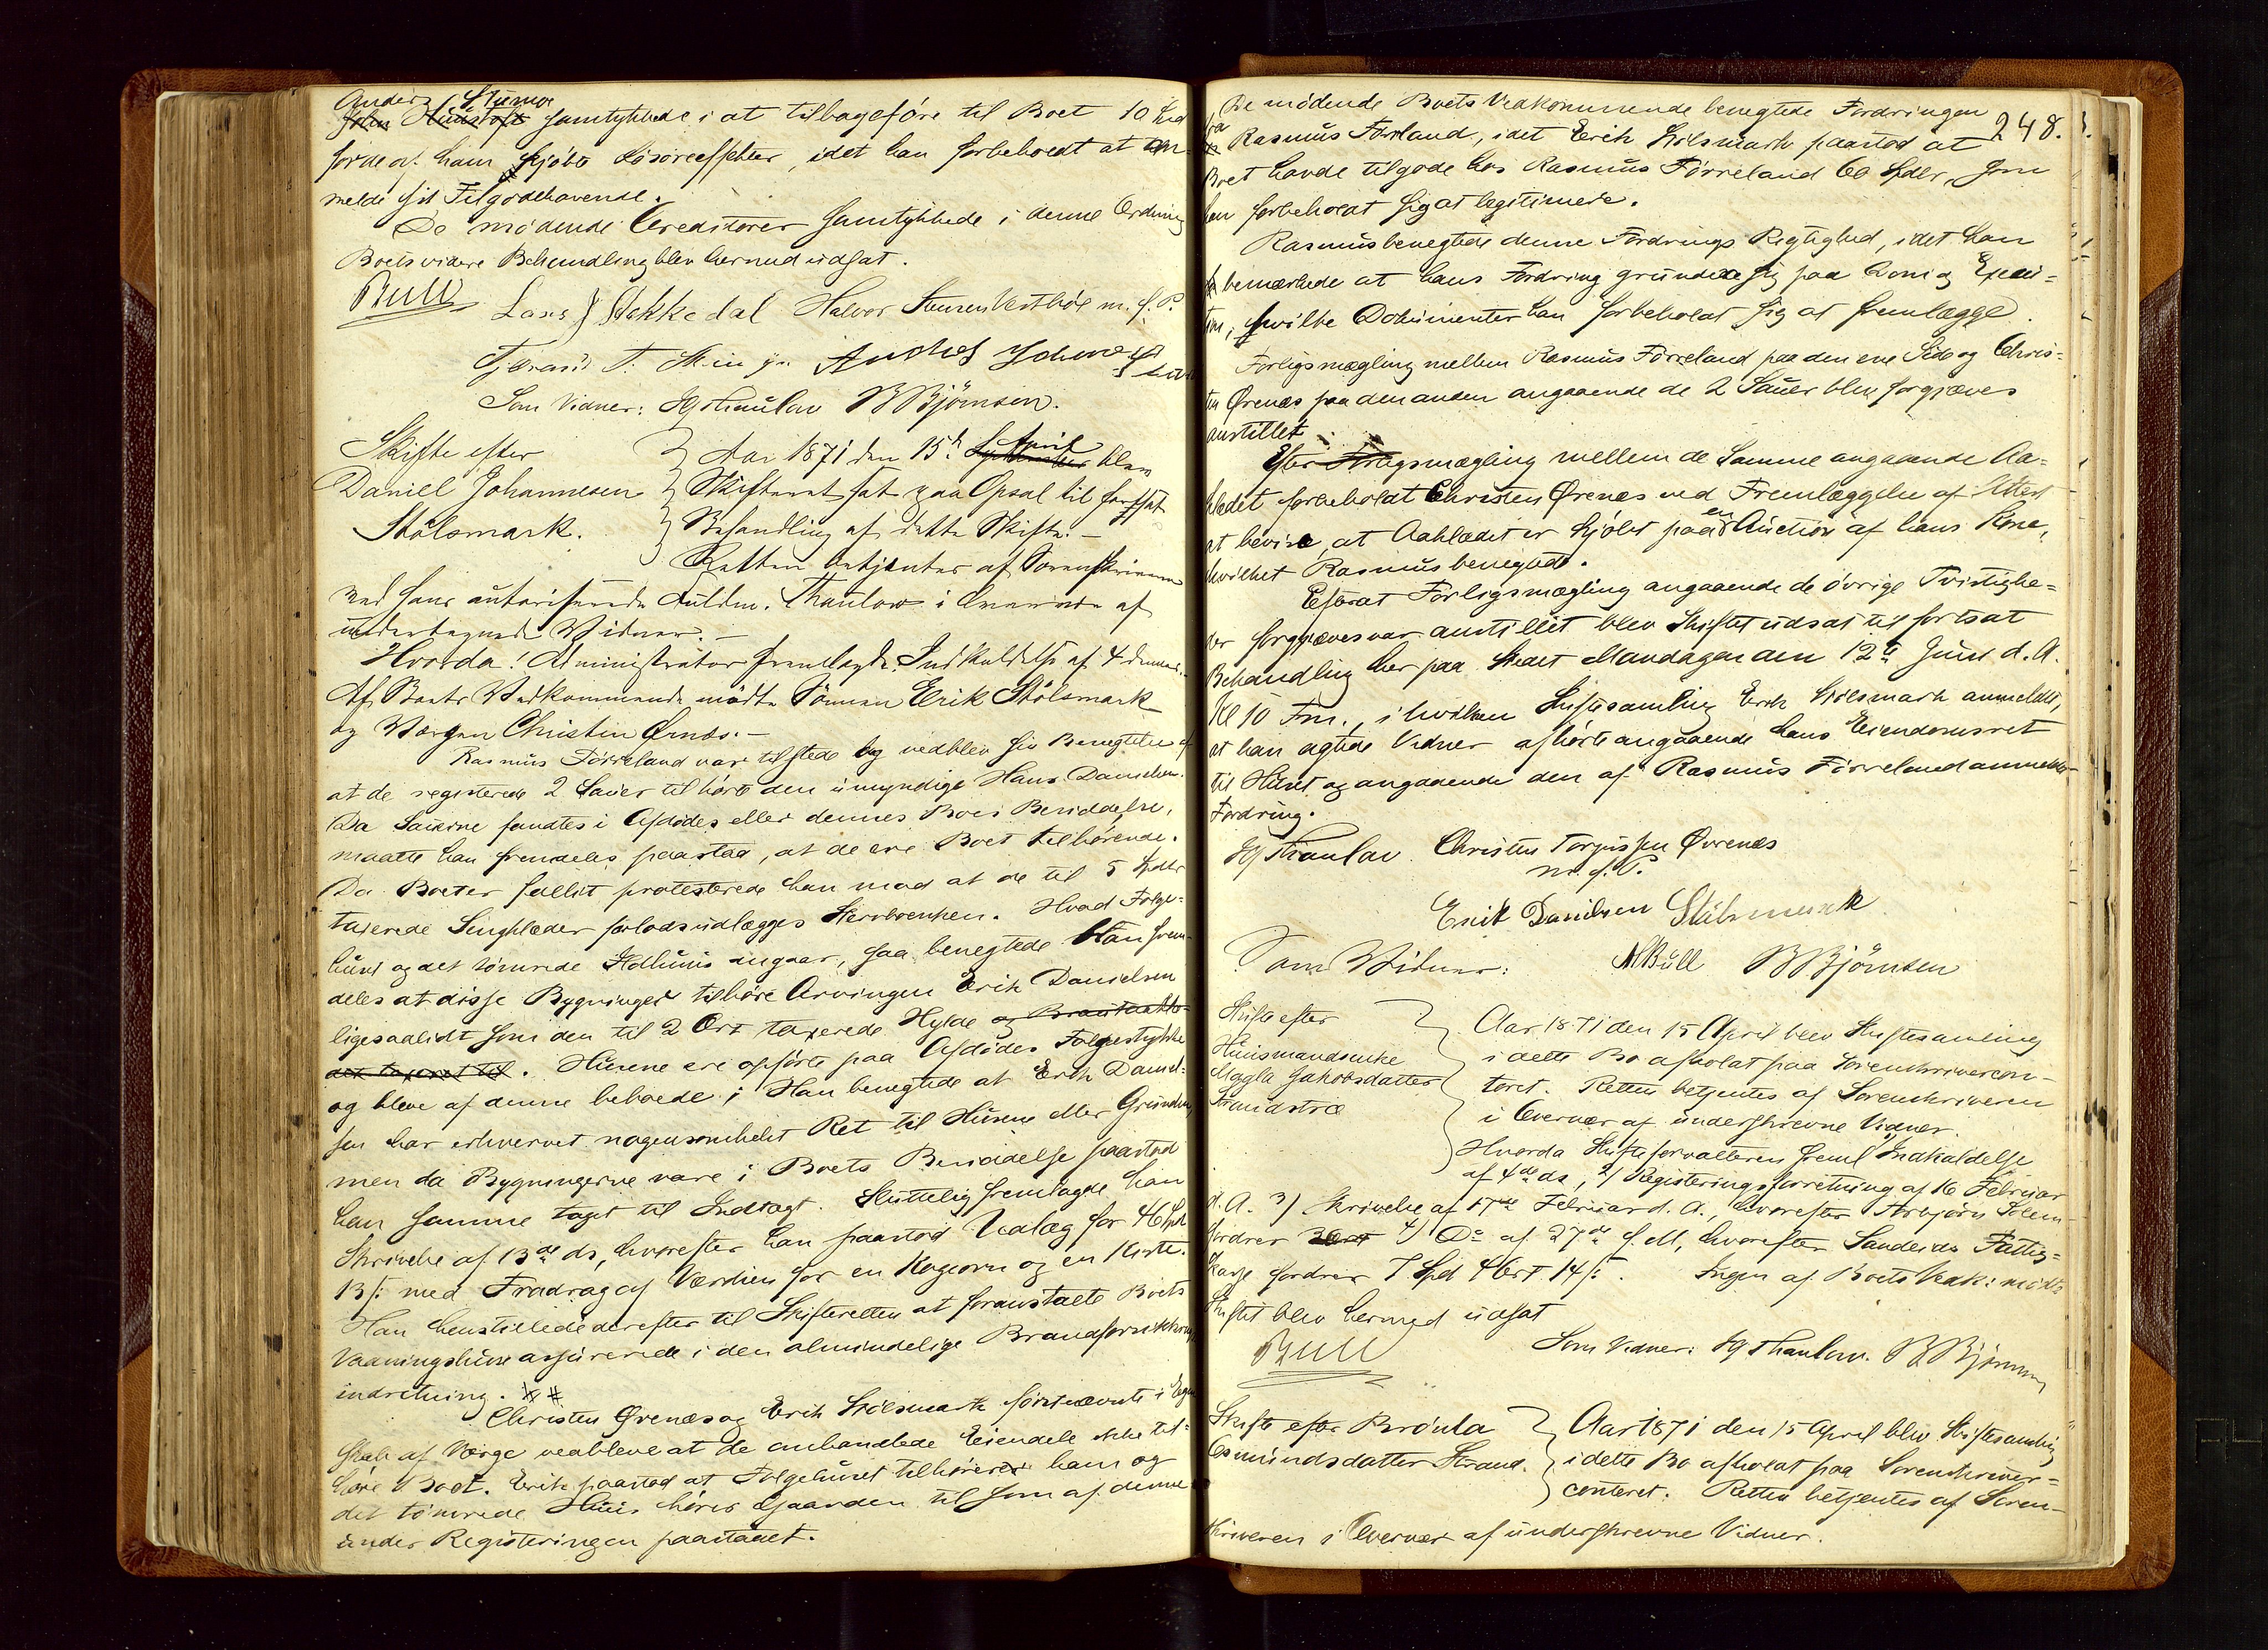 Anders Stumoe
John Huustoft samtykkede i at tilbageføre til Boet 10 Spd
for de af ham kjøbte Løsøreeffekter, idet han forbeholdt at an-
melde sit Tilgodehavende.
De mødende Creditorer samtykkede i denne Ordning
Boets videre Behandling blev hermed udsat.
Bull Lars Stekkedal Halvor Steensen Vestbøe m. f. P.
Tjerand T. Anders
Som Vidner: HgThaulow BBjörnsen.
Skifte efter
Daniel Johannesen
Stølsmark.
Aar 1871 den 15de September April blev
Skifteret sat paa Opsal til fortsat
Behandling af dette Skifte. -
Retten betjentes af Sorenskriveren
ved hans autoriserede Fuldm. Thaulow i Overvær af
undertegnede Vidner. -
Hvorda! Administrator fremlagde Indkaldelse af 4 dennes.
Af Boets Vedkommende mødte Sønnen Erik Stølsmark
og Værgen Christen Ørenæs. -
Rasmus Førreland var tilstede og vedblev sin Benegtelse af
at de registerede 2 Sauer tilhørte den umyndige Hans Danielsen.
Da Sauerne fandtes i Afdødes eller dennes Boes Besiddelse,
maatte han fremdeles paastaa, at de ere Boet tilhørende.
Da Boet er fallit protesterede han mod at de til 5 Spdlr
taxerede Sengklæder forlods udlægges Stervboenken. Hvad Følge-
huus og det tømrede Ildhuus angaar, saa benegtede han frem-
deles at disse Bygninger tilhøre Arvingen Erik Danielsen
ligesaalidt som den til 2 Ort taxerede Hylde og
det taxeret til. Husene ere opførte paa Afdødes Følgestykke
og bleve af denne beboede. Han benegtede at Erik Daniel-
sen har erhvervet nogensomhelst Ret til Husene eller Grunden,
men da Bygningerne vare i Boets Besiddelse paastod
han samme taget til Indtægt. Sluttelig fremlagde han
Skrivelse af 13de ds, hvorefter han paastod Udlæg for 46 Spd
13 s: med Fradrag af Værdien for en Kogeovn og en Kiste.
Han henstillede derefter til Skifteretten at foranstalte Boets
Vaaningshuse assurerede i den almindelige Brandforsikkrings
indretning.
Christen Ørenæs og Erik Stølsmark førstnævnte i Egen
skab af Værge vedbleve at de omhandlede Eiendele ikke til-
høre Boet. Erik paastod at Følgehuset tilhører ham og
det tømrede Huus hører Gaarden til som af denne
under Registeringen paastaaet.
248.
De mødende Boets Vedkommende benegtede Fordringen
fra Rasmus Førreland, idet Erik Stølsmark paastod at
Boet havde tilgode hos Rasmus Førreland 60 Spdlr, som
han forbeholdt sig at legitimere.
Rasmus benegtede denne Fordrings Rigtighed, idet han
bemærkede at hans Fordring grundede sig paa Dom og Execu-
tion, hvilke Dokumenter han forbeholdt sig at fremlægge.
Forligsmægling mellem Rasmus Førreland paa den ene Side og Chris-
ten Ørenæs paa den anden angaaende de 2 Sauer blev forgjæves
anstillet.
Efter Forligsmægling mellem de Samme angaaende Aa-
klædet forbeholdt Christen Ørenæs ved Fremlæggelse af Attest
at bevise, at Aaklædet er kjøbt paa en Auction af hans Kone,
hvilket Rasmus benegtede.
Efterat Forligsmægling angaaende de øvrige Tvistighe-
der forgjæves var anstillet blev Skiftet udsat til fortsat
Behandling her paa Stedet Mandagen den 12te Juni d. A.
Kl 10 Fm., i hvilken Skiftesamling Erik Stølsmark anmeldte,
at han agtede Vidner afhørte angaaende hans Eiendomsret
til Huset og angaaende den af Rasmus Førreland anmeldte
Fordring.
HgThaulow Christen Torgussen Øvrenæs
m. f. P.
Erik Danielsen Stølsmark
Som Vidner: NBull BBjörnsen
Skifte efter
Huusmandsenke
Magla Jakobsdatter
Aar 1871 den 15 April blev Skiftesamling
i dette Bo afholdt paa Sorenskrivercon-
toret. Retten betjentes af Sorenskriveren
i Overvær af underskrevne Vidner.
Hvorda Skifteforvalteren freml 1) Indkaldelse
af 4de ds, 2) Registeringsforretning af 16 Februar
d. A. 3) Skrivelse af 17de Februar d. A., hvorefter
fordrer 4) Do af 27de f. M., hvorefter Sandeids Fattig-
kasse fordrer 7 Spd 4 Ort 14 s:. Ingen af Boets Vedk: mødte
Skiftet blev hermed udsat
Bull Som Vidner: HgThaulow. BBjörnsen
Skifte efter Brønla
Osmundsdatter Strand.
Aar 1871 den 15 April blev Skiftesamling
i dette Bo afholdt paa Sorenskriver-
contoret. Retten betjentes af Soren-
skriveren i Overvær af underskrevne Vidner.